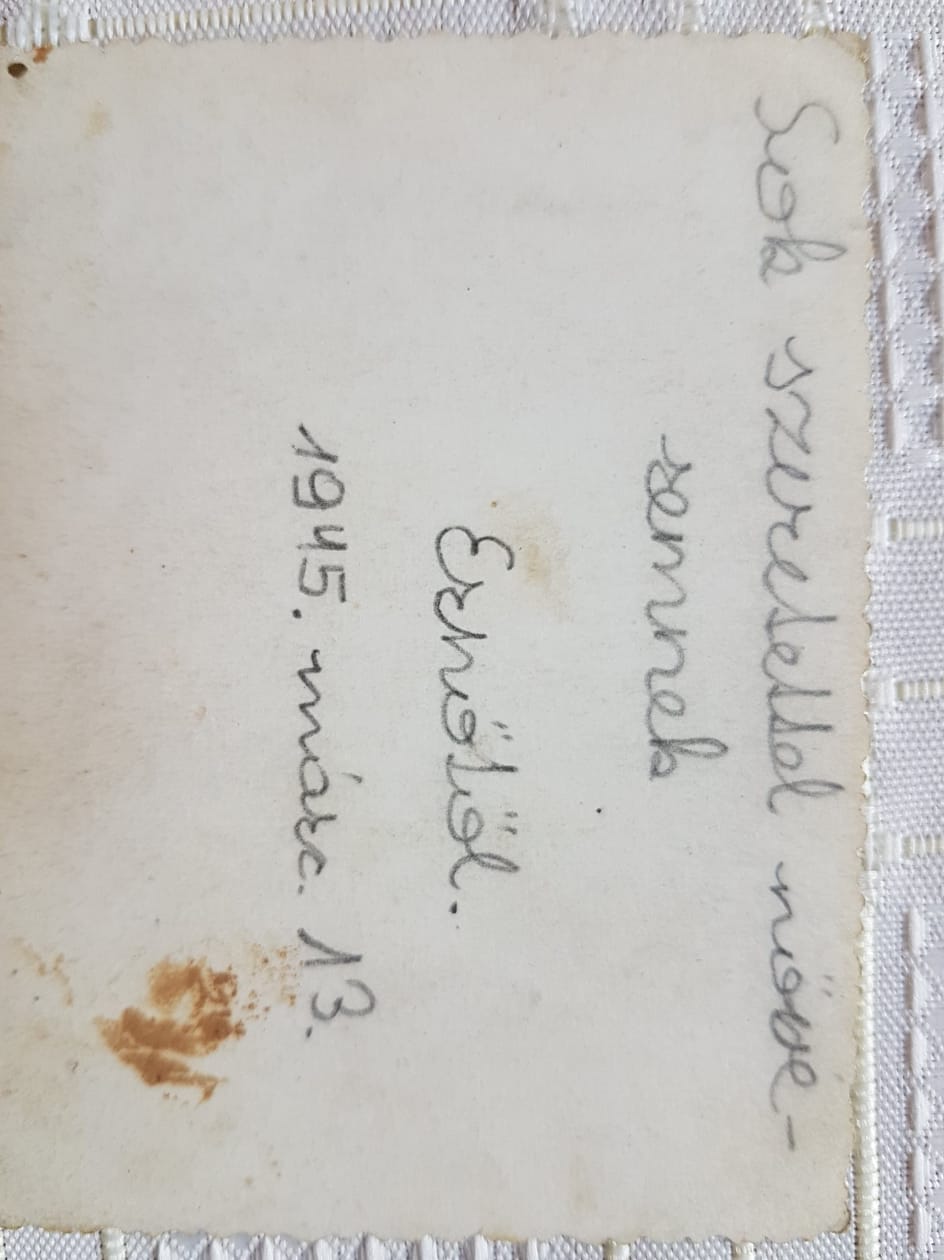 Sok szeretettel nővé-
remnek
Ernőtöl.
1945. márc. 13.